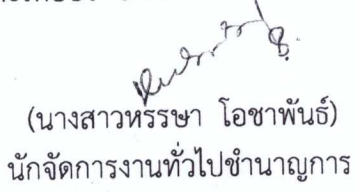 (นางสาวหรรษา โอชาพันธ์)
นักจัดการงานทั่วไปชำนาญการ